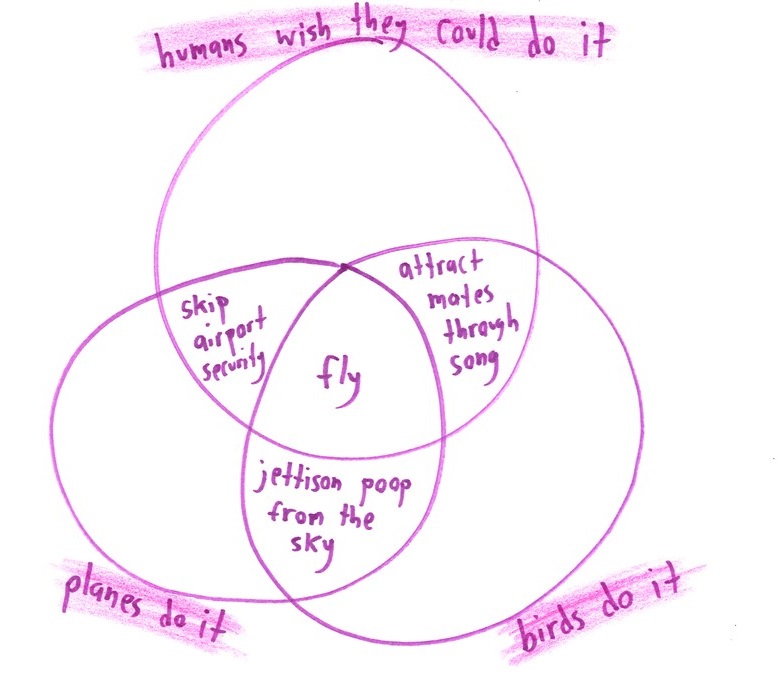 humans wish they could do it
skip
airport
security
attract
mates
through
song
fly
jettison poop
from the
sky
planes do it
birds do it